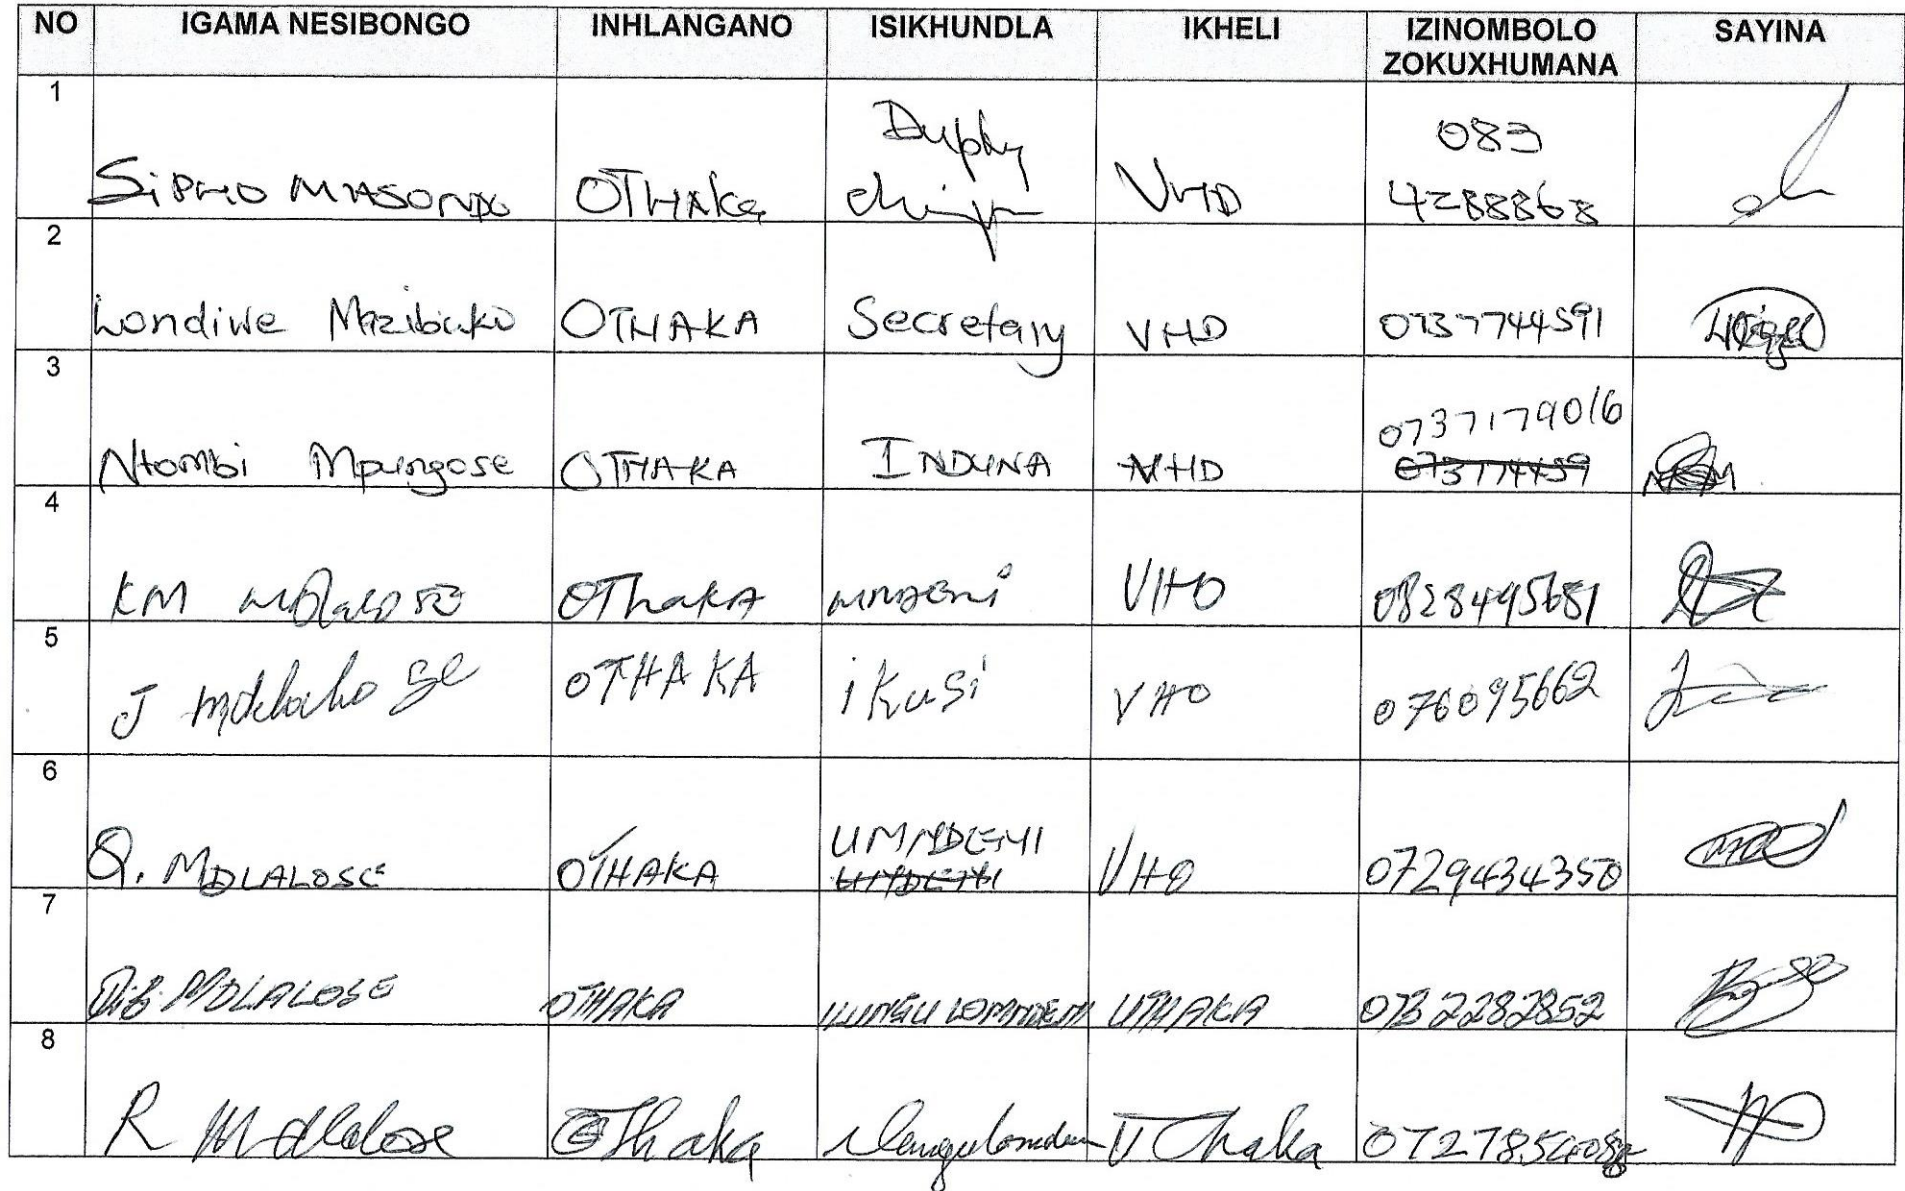 NO IGAMA NESIBONGO INHLANGANO ISIKHUNDLA IKHELI IZINOMBOLO ZOKUXHUMANA SAYINA
1 SiPHO MASONDO OTHAKa VHD 083 4288868
2 Londiwe Mazibuko OTHAKA Secretary VHD 0737744591
3 Ntombi Mpungose OTHAKA INDUNA VHD 0737179016
4 KM OThaKA VHD 0828495681
5 J OTHAKA iKusi VHO 076095662
6 Q. MDLALOSE OTHAKA UMNDENI VHO 0729434350
7 MDLALOSE OTHAKA ILUNGU LOMNDENI UTHAKA 0732282852
8 R Mdlalose OThaka UThaka